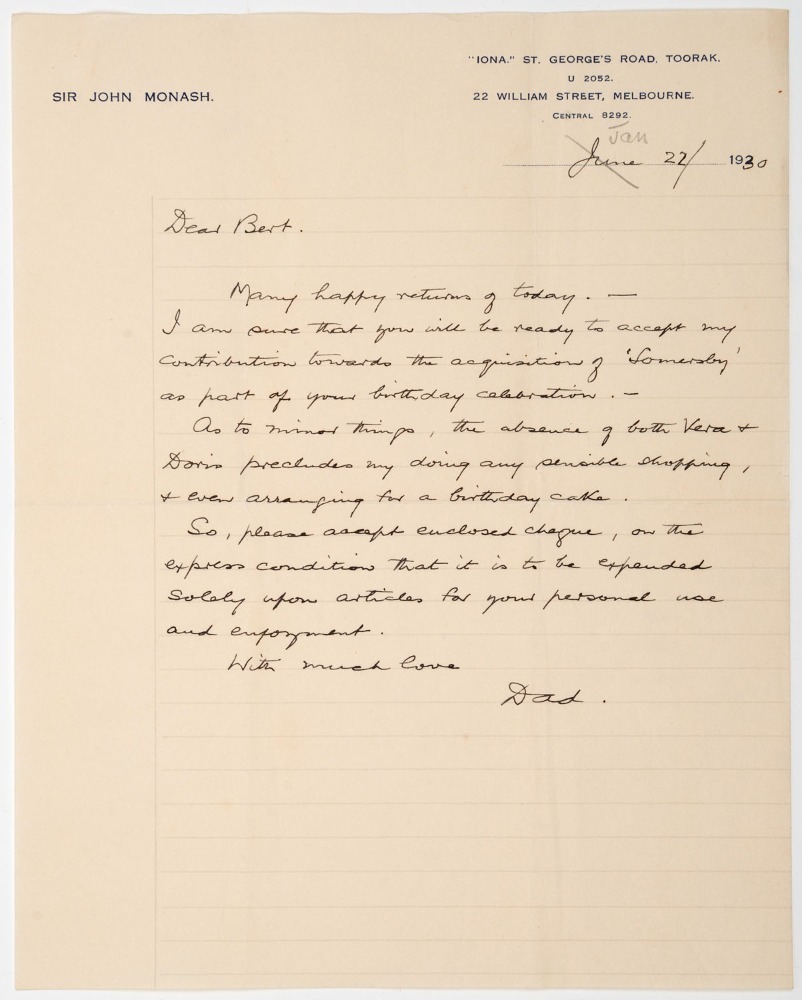 "IONA." ST. GEORGE'S ROAD, TOORAK.
U 2052.
SIR JOHN MONASH.
22 WILLIAM STREET, MELBOURNE.
CENTRAL 8292.
Jan
June 22/ 1930
Dear Bert.
Many happy returns of today. —
I am sure that you will be ready to accept my
contribution towards the acquisition of 'Somersby'
as part of your birthday celebration. –
As to minor things, the absence of both Vera +
Doris precludes my doing any sensible shopping,
+ even arranging for a birthday cake.
So, please accept enclosed cheque, on the
express condition that it is to be expended
solely upon articles for your personal use
and enjoyment.
With much love
Dad.